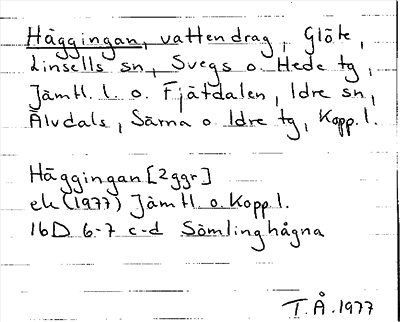 Häggingan, vattendrag, Glöte,
Linsells sn, Svegs o. Hede tg,
Jämtl. l. o. Fjätdalen, Idre sn,
Älvdals, Särna o. Idre tg, Kopp. l.
Häggingan [2 ggr]
ek (1977) Jämtl. o. Kopp l.
16D 6-7 c-d Sömlinghågna
T.Å. 1977